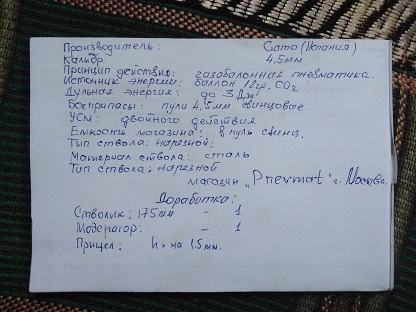 Производитель: Gamo (Испания)
Калибр: 4.5мм
Принцип действия: газобалонная пневматика.
Источник энергии: баллон 12гр. CO2
Дульная энергия: до 3 Дж.
Боеприпасы: пули 4,5мм. свинцовые
УСМ: двойного действия
Емкость магазина: 8 пуль свинц.
Тип ствола: нарезной.
Материал ствола: сталь
Тип ствола: нарезной
магазин "Pnevmat" г. Москва.
Доработка:
Стволик: 175мм - 1
Модератор: - 1
Прицел: h = на 1.5мм.